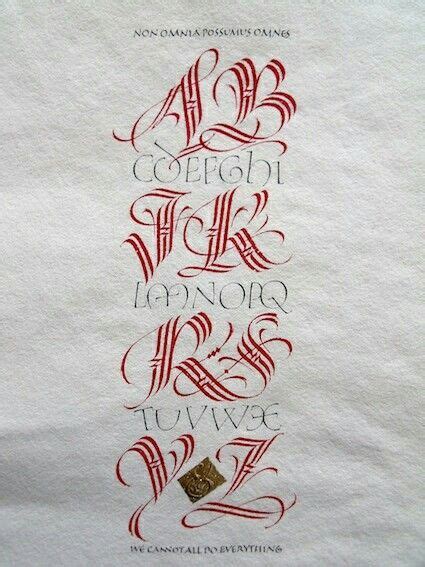 NON OMNIA POSSUMUS OMNES
AB
CDEFGHI
JK
LMNOPQ
RS
TUVWX
YZ
WE CANNOT ALL DO EVERYTHING